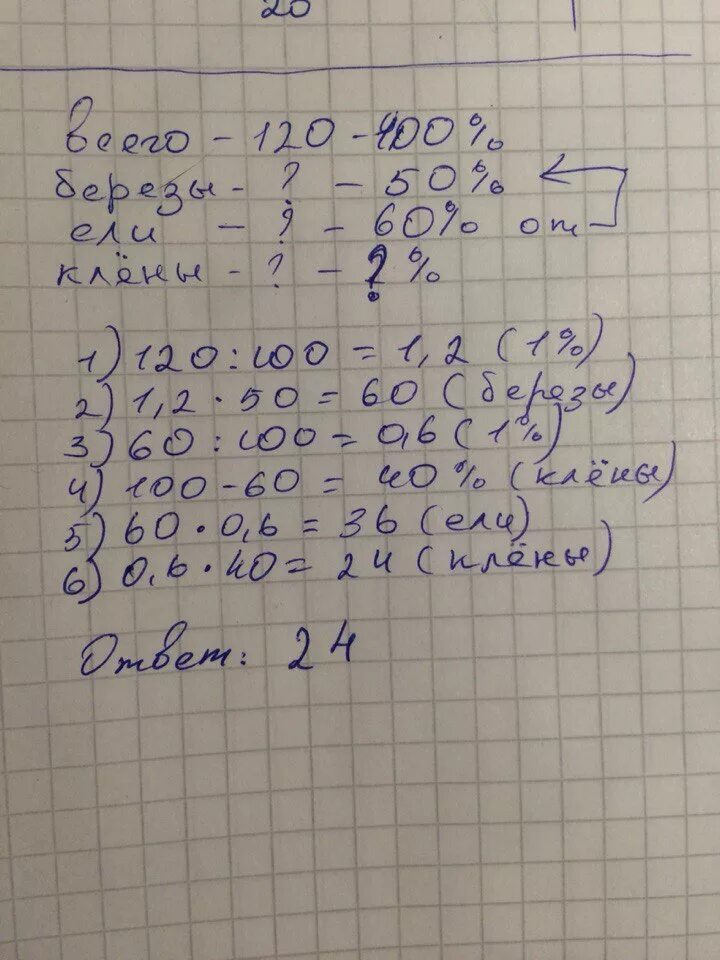 20
всего - 120 - 100%
березы - ? - 50%
ели - ? - 60% от
клёны - ? - ? %
1) 120 : 100 = 1,2 (1%)
2) 1,2 · 50 = 60 (березы)
3) 60 : 100 = 0,6 (1%)
4) 100 - 60 = 40% (клёны)
5) 60 · 0,6 = 36 (ели)
6) 0,6 · 40 = 24 (клёны)
Ответ: 24